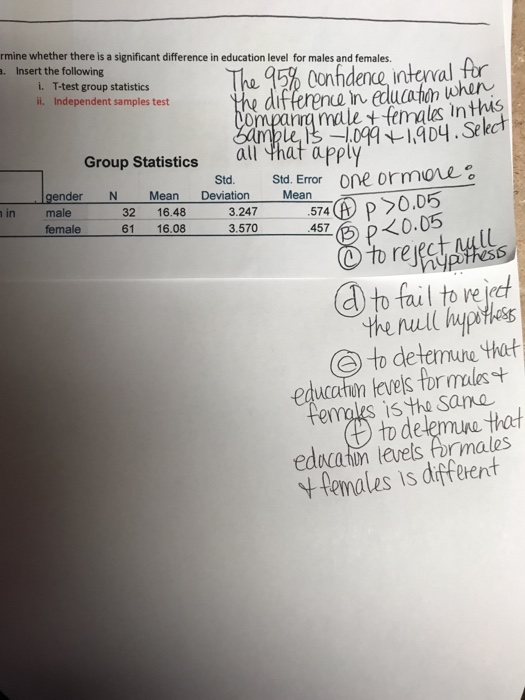 rmine whether there is a significant difference in education level for males and females.
a. Insert the following
i. T-test group statistics
ii. Independent samples test
The 95% confidence interval for
the difference in education when
Comparing male + females in this
Sample, is -1.099 + 1,904. Select
all that apply
one or more:
Group Statistics
gender N Mean Std. Deviation Std. Error Mean
in male 32 16.48 3.247 .574
female 61 16.08 3.570 .457
A p > 0.05
B p < 0.05
C to reject null
hypothess
d to fail to reject
the null hypothess
e to determine that
education levels for males +
females is the same
f to determine that
education levels for males
+ females is different